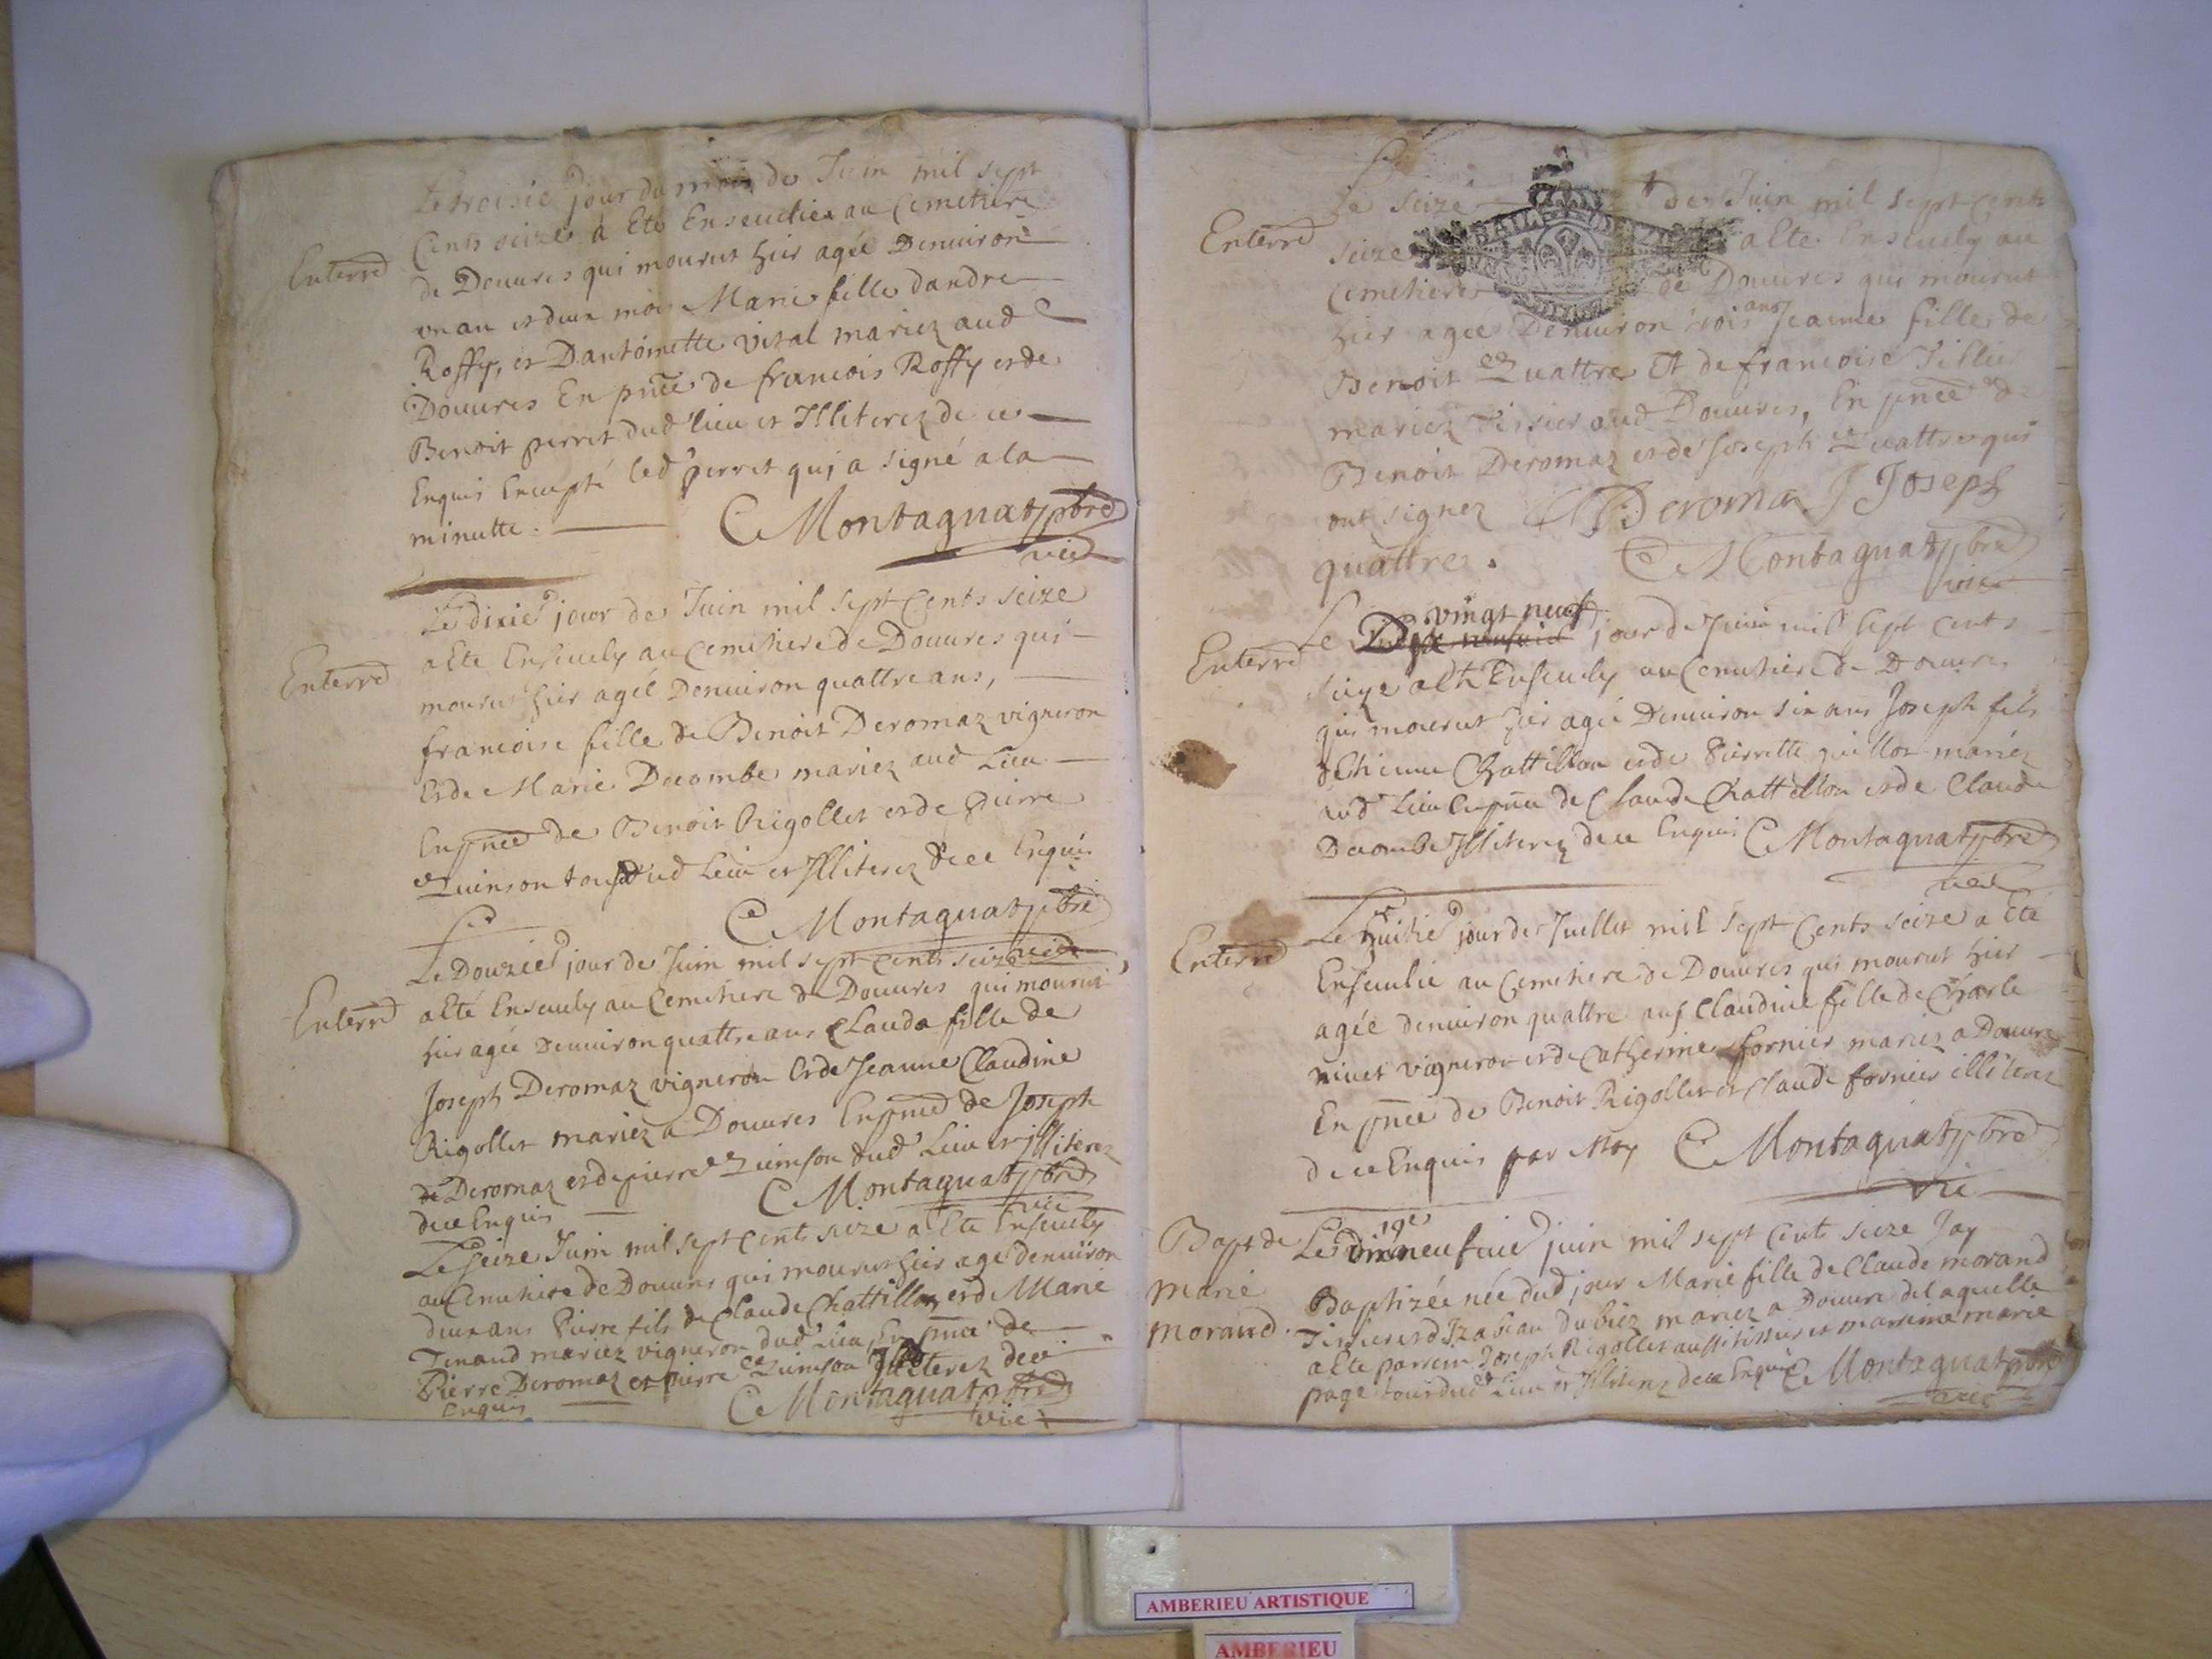 Le troisié jour du mois de Juin mil sept
Cents seize à Eté Enseuelie au Cemetiere
Enterré
de Douures qui mourut hier agée Denuiron
un an et deux mois Marie fille dandre
Roffy, et Dantoinette vital mariez aud
Douures En pnce de francois Roffy et de
Benoit perret dud lieu et Illiterez de ce
Enquis Excepté led perret qui a signé a la
minutte. C Montagnat pbre
vic
Le dixié jour de Juin mil sept Cents seize
Enterré
a Eté Enseuely au Cemetiere de Douures qui
mourut hier agée Denuiron quattre ans,
francoise fille de Benoit Deromaz vigneron
Et de Marie Decombe mariez aud Lieu
En pnce de Benoit Rigollet et de pierre
Quinson tous dud Lieu et Illiterez de ce Enquis
C Montagnat pbre
vic
Le Douzié jour de Juin mil sept cents seize
Enterré
a Eté Enseuely au Cemetiere de Douures qui mourut
hier agée Denuiron quattre ans Clauda fille de
Joseph Deromaz vigneron Et de Jeanne Claudine
Rigollet mariez a Douures En pnce de Joseph
Deromaz et de pierre Quinson dud Lieu et illiterez
de ce Enquis C Montagnat pbre
vic
Le seize Juin mil sept cents seize a Eté Enseuely
au Cemetiere de Douures qui mourut hier agé denuiron
deux ans Pierre fils de Claude Chattillon et de Marie
Tenaud mariez vigneron dud Lieu En pnce de
Pierre Deromaz et pierre Quinson Illiterez de ce
Enquis C Montagnat pbre
vic
Le seize de Juin mil sept Cents
Enterré
seize a Eté Enseuely au
Cemetiere de Douures qui mourut
hier agée Denuiron trois ans Jeanne fille de
Benoit Quattre Et de francoise Tillier
mariez Tissier aud Douures, En pnce de
Benoit Deromaz et de Joseph Quattre qui
ont signez B Deroma J Joseph
quattre. C Montagnat pbre
vic
vingt neuf
Le jour de Juin mil sept cents
Enterré
seize a Eté Enseuely au Cemetiere de Douures
qui mourut hier agé Denuiron six ans Joseph fils
dEtienne Chattillon et de Pierrette guillot mariez
aud Lieu En pnce de Claude Chattillon et de Claude
Decombe Illiterez de ce Enquis C Montagnat pbre
vic
Le huitié jour de Juillet mil sept Cents seize a Eté
Enterré
Enseuelie au Cemetiere de Douures qui mourut hier
agée denuiron quattre ans Claudine fille de Charle
niuet vigneron et de Catherine fornier mariez a Douure
En pnce de Benoit Rigollet et Claude fornier illiterez
de ce Enquis par Moy C Montagnat pbre
vic
19e
Bapt de
marie
morand.
Le dixneufuié juin mil sept Cents seize Jay
Baptizée née dud jour Marie fille de Claude morand
Tissier et dIzabeau dubiez mariez a Douure delaquelle
a Eté parrein Joseph Rigollet aussi tissier et marreine marie
page tous dud Lieu et Illiterez de ce Enquis C Montagnat pbre
vic
AMBERIEU ARTISTIQUE
AMBERIEU